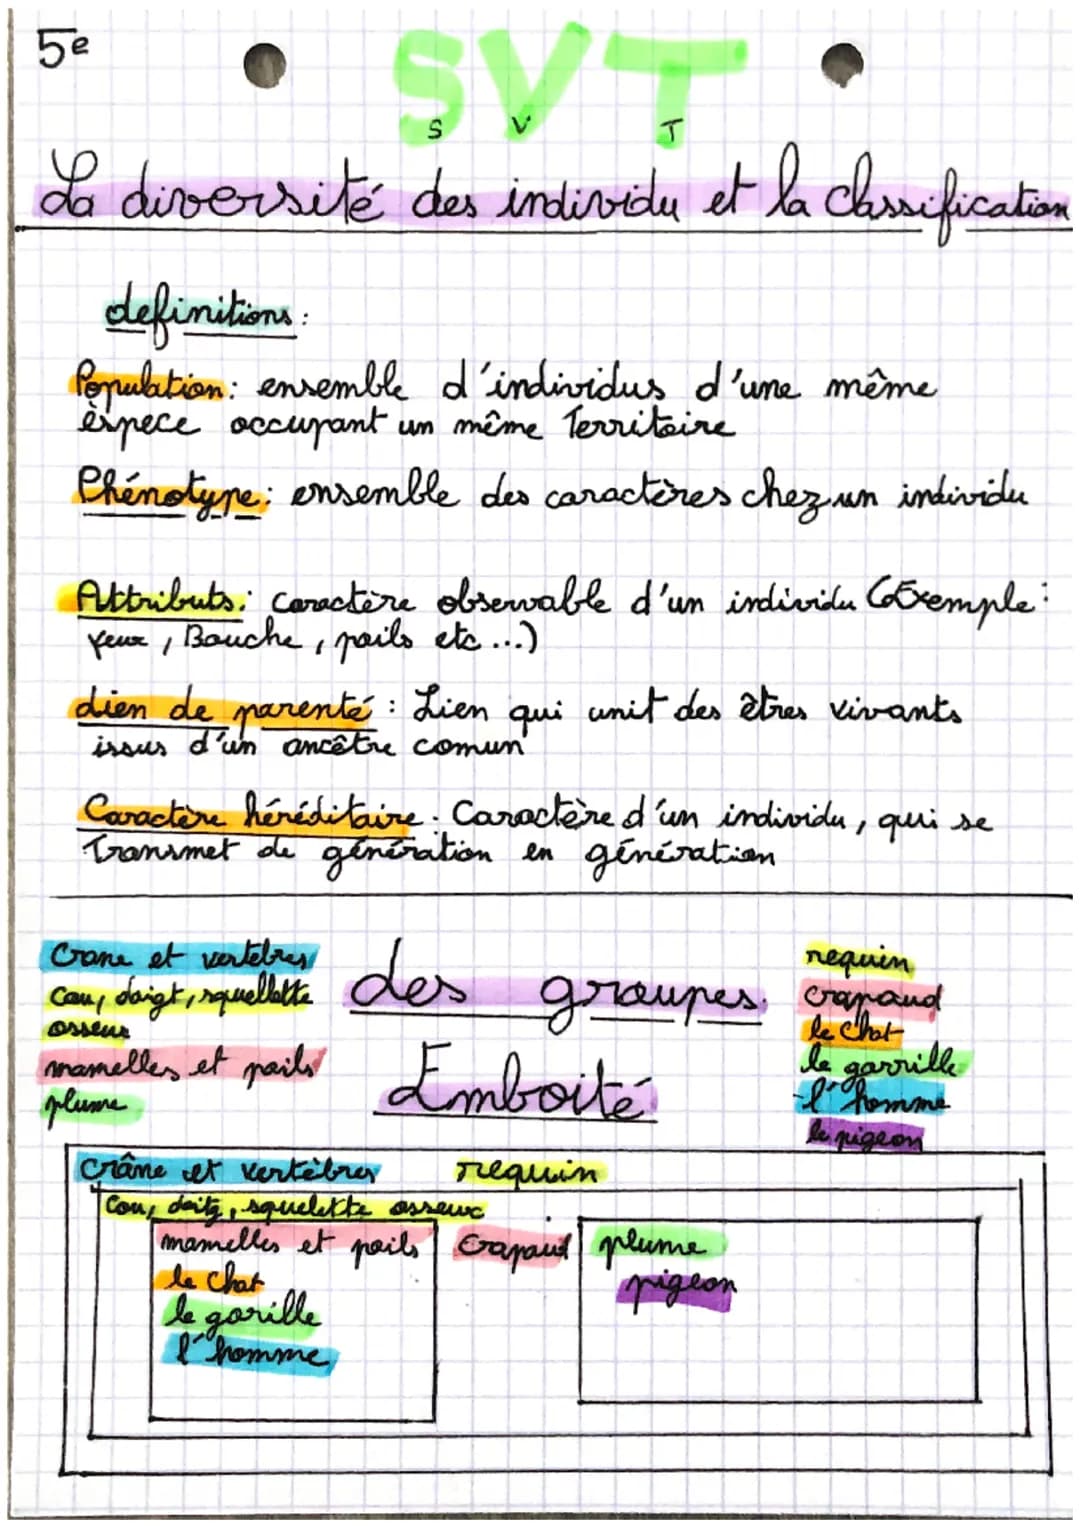 5e
SVT
S V T
La diversité des individu et la classification
definitions:
Population: ensemble d'individus d'une même
èspece occupant un même Territoire
Phénotype: ensemble des caractères chez un individu
Attributs: caractère observable d'un individu (Exemple:
Yeux, Bouche, poils etc...)
Lien de parenté: Lien qui unit des êtres vivants
issus d'un ancêtre comun
Caractère héréditaire. Caractère d'un individu, qui se
Transmet de génération en génération
Crane et vertebres
Cou, doigt, squellette
osseux
mamelles et poils
plume
des groupes
Emboité
requin
crapaud
le Chat
le gorrille
l'homme
le pigeon
Crâne et vertèbres requin
Cou, doitg, squelette osseux
mamelles et poils Crapaud plume
le Chat pigeon
le gorille
l'homme